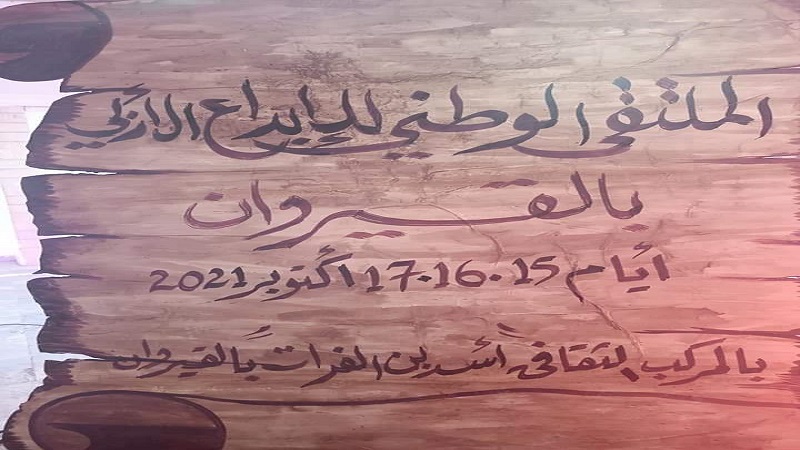 الملتقى الوطني للإبداع الأدبي
بالقيروان
أيام 15.16.17 أكتوبر 2021
بالمركب الثقافي أسد بن الفرات بالقيروان